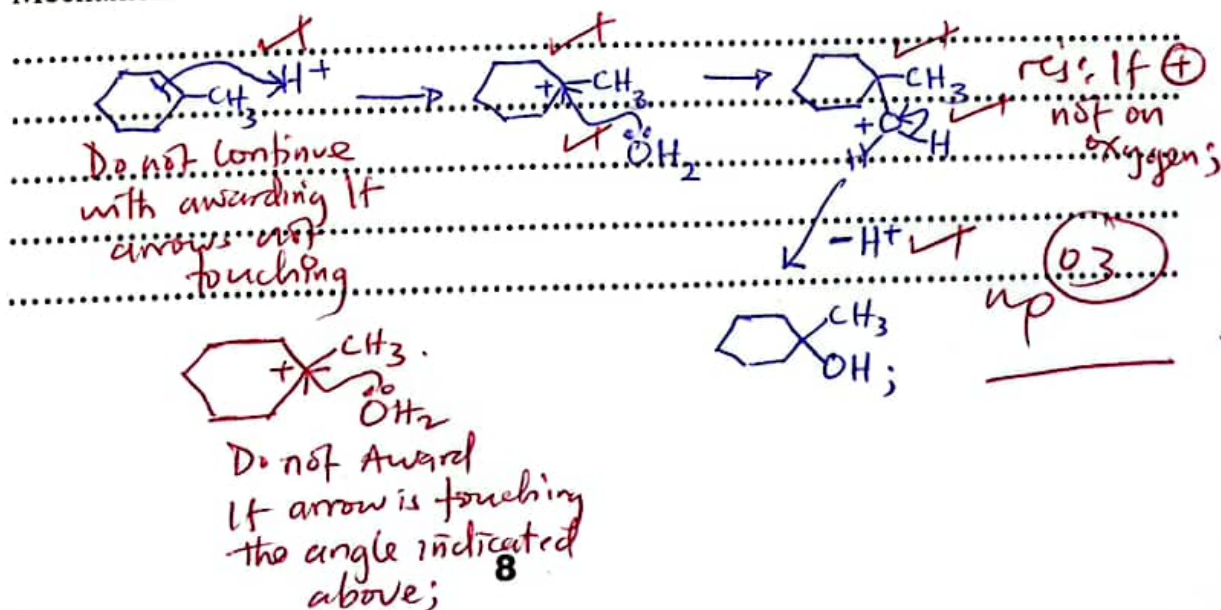 H⁺
CH₃
+
CH₃
ÖH₂
CH₃
+O
H
H
rej: If ⊕
not on
oxygen;
Do not Continue
with awarding If
arrows not
touching
-H⁺
03
CH₃
OH;
CH₃.
+
ÖH₂
Do not Award
If arrow is touching
the angle indicated
above;
8